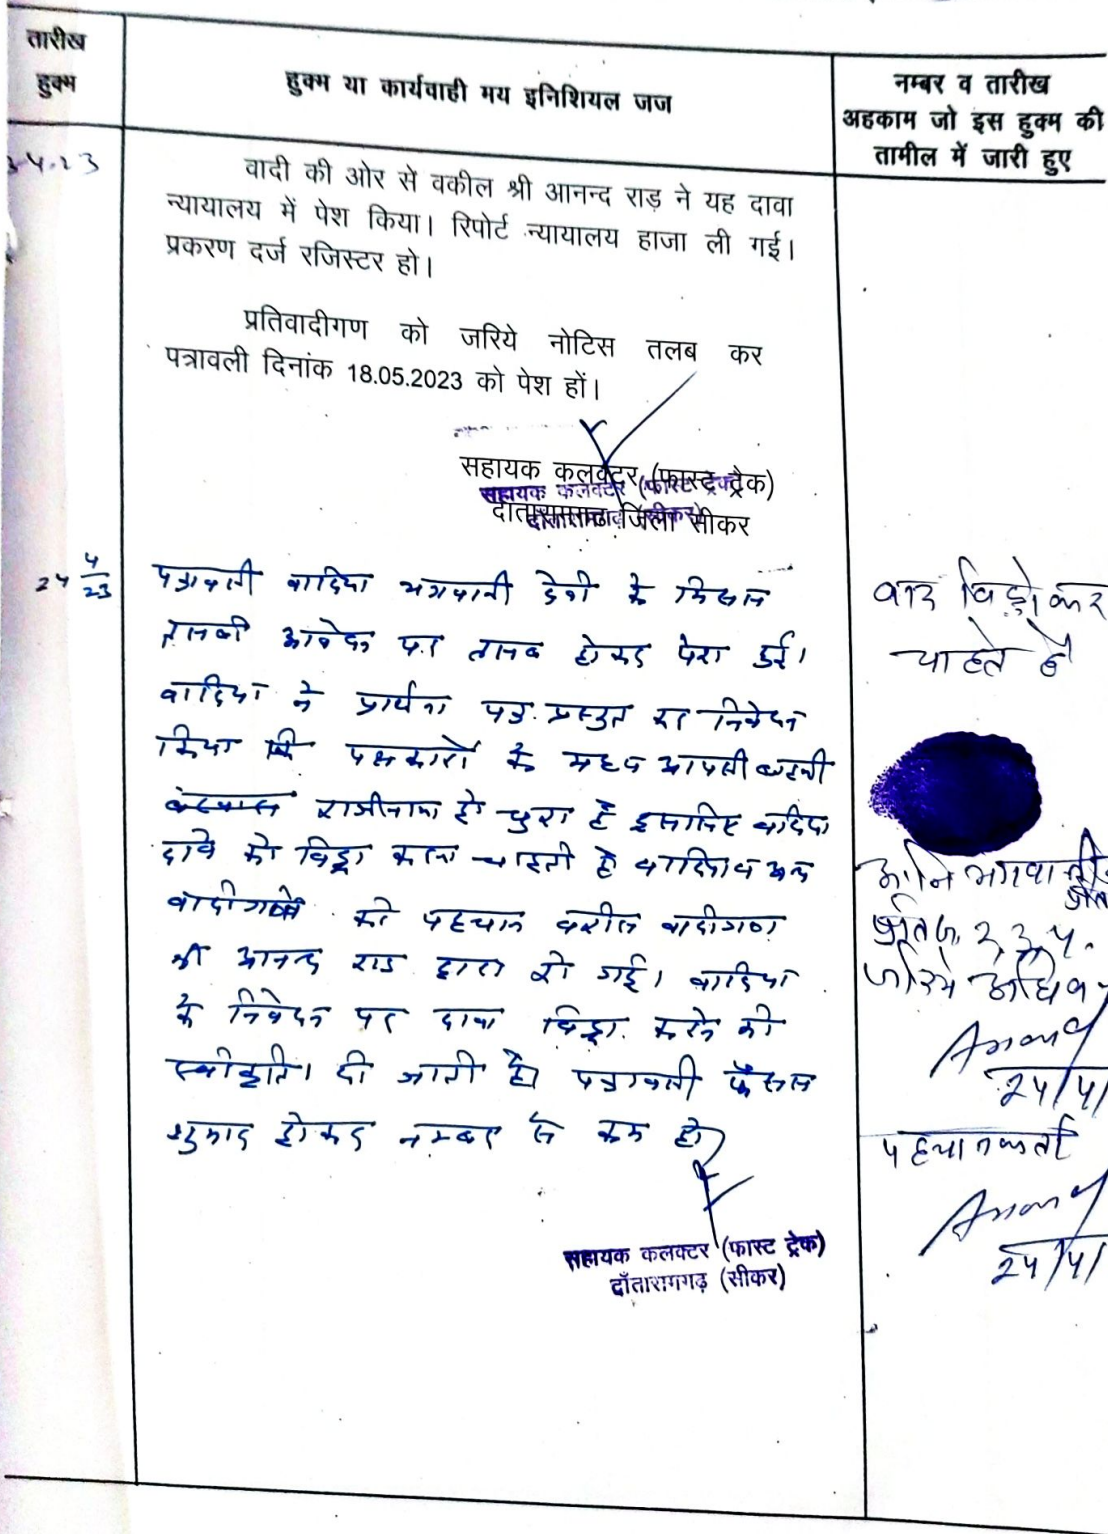 तारीख
हुक्म
हुक्म या कार्यवाही मय इनिशियल जज
नम्बर व तारीख
अहकाम जो इस हुक्म की
तामील में जारी हुए
4.23
वादी की ओर से वकील श्री आनन्द राड़ ने यह दावा
न्यायालय में पेश किया। रिपोर्ट न्यायालय हाजा ली गई।
प्रकरण दर्ज रजिस्टर हो।
प्रतिवादीगण को जरिये नोटिस तलब कर
पत्रावली दिनांक 18.05.2023 को पेश हों।
सहायक कलक्टर (फास्ट ट्रैक)
दांतारामगढ जिला सीकर
24 4/23
पत्रावली वादिया भगवानी देवी के
तलबी आवेदन पर तलब होकर पेश हुई।
वादिया ने प्रार्थना पत्र प्रस्तुत कर निवेदन
किया कि पक्षकारों के मध्य आपसी
राजीनामा हो चुका है इसलिए वादिया
दावे को विड्रा करना चाहती है वादिया व अन्य
वादीगण की पहचान वकील वादीगण
श्री आनन्द राड द्वारा की गई। वादिया
के निवेदन पर दावा विड्रा करने की
स्वीकृति। दी जाती है। पत्रावली फैसल
शुमार होकर नम्बर से कम हो
सहायक कलक्टर (फास्ट ट्रेक)
दाँतारामगढ़ (सीकर)
वाद विड्रो कर
चाहते है
2, 3, 4.
जरिये अधिव
Anand
24/4/
पहचानकर्ता
Anand
24/4/